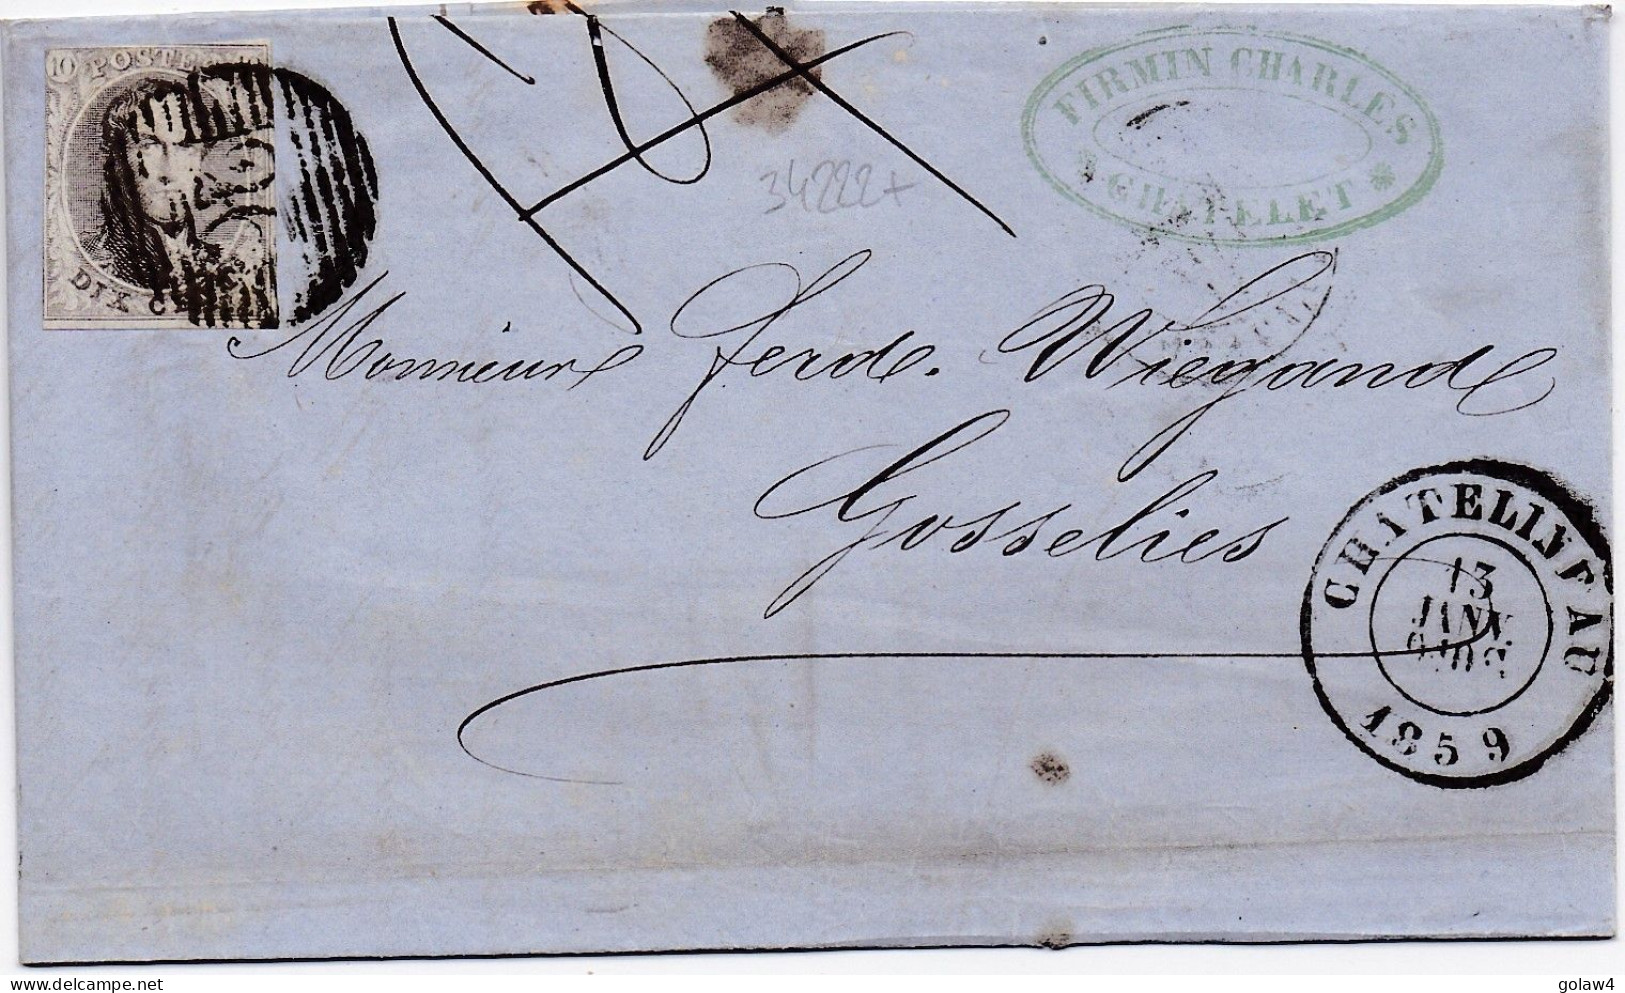 10 POSTES
DIX CENTS
FIRMIN CHARLES
* CHATELET *
34222+
Monsieur Ferde. Wiegande
Gosselies
CHATELINEAU
13
JANV.
1859
delcampe.net
golaw4